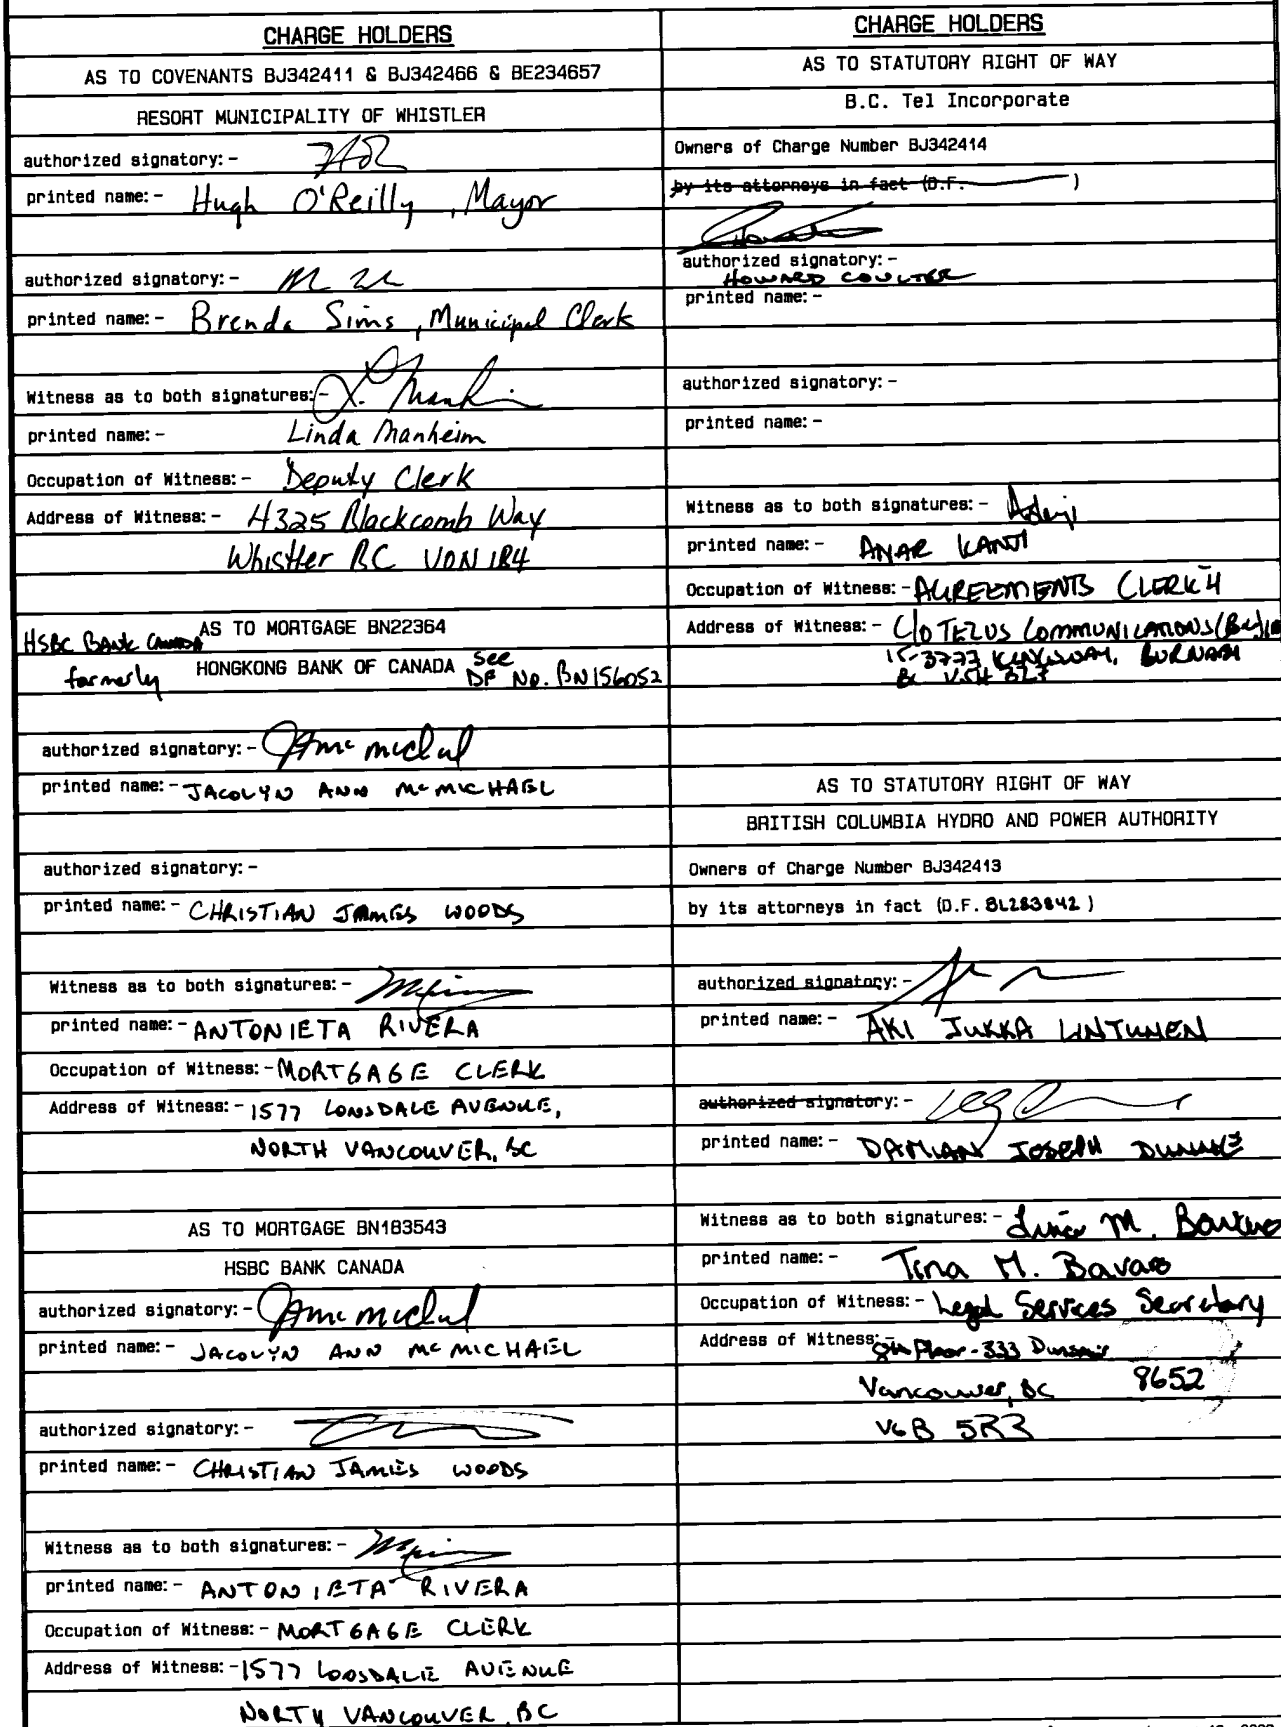 CHARGE HOLDERS
AS TO COVENANTS BJ342411 & BJ342466 & BE234657
RESORT MUNICIPALITY OF WHISTLER
authorized signatory: -
printed name: - Hugh O'Reilly, Mayor
authorized signatory: -
printed name: - Brenda Sims, Municipal Clerk
Witness as to both signatures: -
printed name: - Linda Manheim
Occupation of Witness: - Deputy Clerk
Address of Witness: - 4325 Blackcomb Way
Whistler BC V0N 1B4
AS TO MORTGAGE BN22364
HSBC BANK CANADA
formerly HONGKONG BANK OF CANADA see
DF No. BN156052
authorized signatory: -
printed name: - JACOLYN ANN McMICHAEL
authorized signatory: -
printed name: - CHRISTIAN JAMES WOODS
Witness as to both signatures: -
printed name: - ANTONIETA RIVERA
Occupation of Witness: - MORTGAGE CLERK
Address of Witness: - 1577 LONSDALE AVENUE,
NORTH VANCOUVER, BC
AS TO MORTGAGE BN183543
HSBC BANK CANADA
authorized signatory: -
printed name: - JACOLYN ANN McMICHAEL
authorized signatory: -
printed name: - CHRISTIAN JAMES WOODS
Witness as to both signatures: -
printed name: - ANTONIETA RIVERA
Occupation of Witness: - MORTGAGE CLERK
Address of Witness: - 1577 LONSDALE AVENUE
NORTH VANCOUVER, BC
CHARGE HOLDERS
AS TO STATUTORY RIGHT OF WAY
B.C. Tel Incorporate
Owners of Charge Number BJ342414
by its attorneys in fact (D.F. )
authorized signatory: -
HOWARD COULTER
printed name: -
authorized signatory: -
printed name: -
Witness as to both signatures: -
printed name: - ANAR KANJI
Occupation of Witness: - AGREEMENTS CLERK 4
Address of Witness: - C/O TELUS COMMUNICATIONS (BC)
15-3777 KINGSWAY, BURNABY
BC V5H 3Z7
AS TO STATUTORY RIGHT OF WAY
BRITISH COLUMBIA HYDRO AND POWER AUTHORITY
Owners of Charge Number BJ342413
by its attorneys in fact (D.F. BL283842)
authorized signatory: -
printed name: - AKI JUKKA LINTUNEN
authorized signatory: -
printed name: - DAMIAN JOSEPH DUNNE
Witness as to both signatures: -
printed name: - Tina M. Bavaro
Occupation of Witness: - Legal Services Secretary
Address of Witness: - 8th Floor - 333 Dunsmuir
Vancouver, BC 8652
V6B 5R3